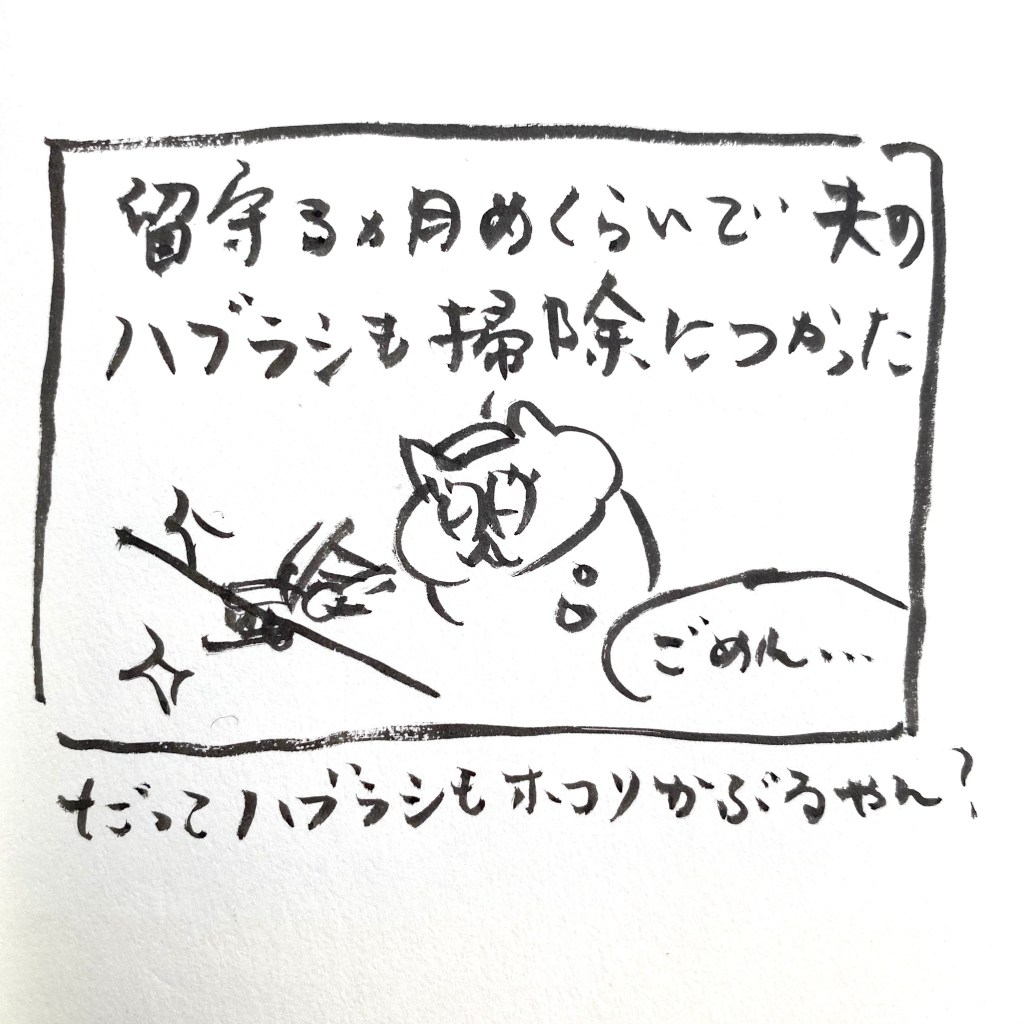 留守3ヵ月めくらいで 夫の
ハブラシも掃除につかった
ごめん...
だってハブラシもホコリかぶるやん?